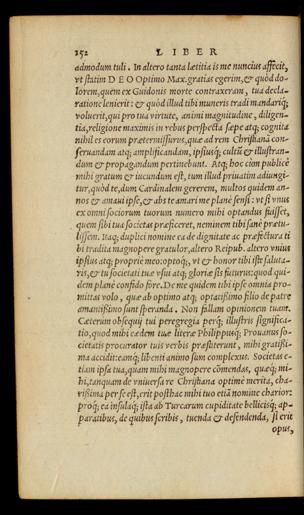 252 LIBER
admodum tuli. In altero tanta lætitia is me nuncius affecit,
vt statim DEO Optimo Max. gratias egerim, & quòd do-
lorem, quem ex Guidonis morte contraxeram, tua decla-
ratione lenierit: & quòd illud tibi muneris tradi mandariq́;
voluerit, qui pro tua virtute, animi magnitudine, diligen-
tia, religione maximis in rebus perspecta sæpe atq; cognita
nihil es eorum prætermissurus, quæ ad rem Christianā con-
seruandam atq; amplificandam, ipsiusq́; cultū & illustran-
dum & propagandum pertinebunt. Atq; hoc cùm publicè
mihi gratum & iucundum est, tum illud priuatim adiungi-
tur, quòd te, dum Cardinalem gererem, multos quidem an-
nos & amaui ipse, & abs te amari me planè sensi: vt si vnus
ex omni sociorum tuorum numero mihi optandus fuisset,
quem sibi tua societas præficeret, neminem tibi sanè prætu-
lissem. Itaq; duplici nomine ea de dignitate ac præfectura ti
bi tradita magnopere gratulor, altero Reipub. altero vnius
ipsius atq; propriè meo: optoq́;, vt & honor tibi iste saluta-
ris, & tu societati tuæ vsui atq; gloriæ sis futurus: quod qui-
dem planè confido fore. De me quidem tibi ipse omnia pro-
mittas volo, quæ ab optimo atq; optatissimo filio de patre
amantissimo sunt speranda. Non fallam opinionem tuam.
Cæterum obsequij tui peregregia perq́; illustris significa-
tio, quod mihi eædem tuæ literæ Philippusq́; Prouanus so-
cietatis procurator tuis verbis præstiterunt, mihi gratissi-
ma accidit: eamq́; libenti animo sum complexus. Societas e-
tiam ipsa tua, quam mihi magnopere cōmendas, quæq́; mi-
hi, tanquam de vniuersa re Christiana optimè merita, cha-
rissima per se est, erit posthac mihi tuo etiā nomine charior:
proq́; ea insulaq́; ista ab Turcarum cupiditate bellicisq́; ap-
paratibus, de quibus scribis, tuenda & defendenda, si erit
opus,